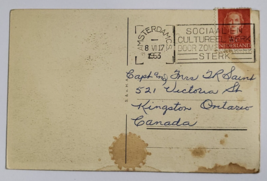 AMSTERDAM
8 VI 17
1953
SOCIAAL
CULTUREEL
DOOR ZOMERZEGELS
STERK
NEDERLAND
Capt and Mrs T R Saint
521 Victoria St
Kingston Ontario
Canada